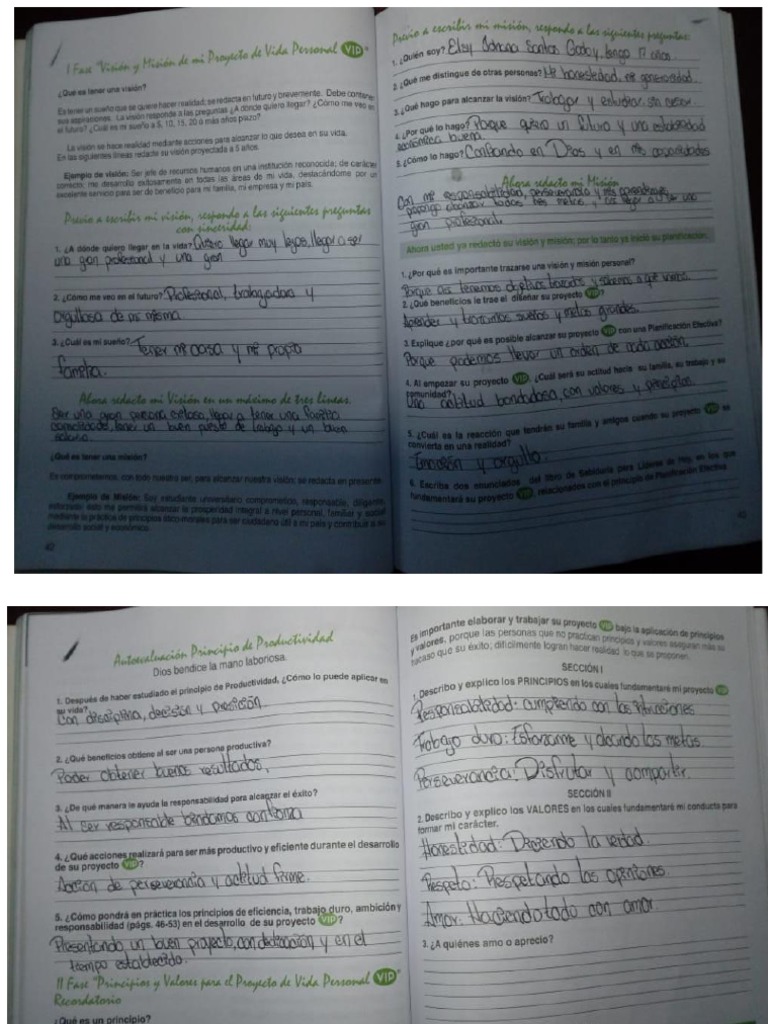 I Fase "Visión y Misión de mi Proyecto de Vida Personal VIP"
¿Qué es tener una visión?
Es tener un sueño que se quiere hacer realidad; se redacta en futuro y brevemente. Debe contener
sus aspiraciones. La visión responde a las preguntas ¿A dónde quiero llegar? ¿Cómo me veo en
el futuro? ¿Cuál es mi sueño a 5, 10, 15, 20 o más años plazo?
La visión se hace realidad mediante acciones para alcanzar lo que desea en su vida.
En las siguientes líneas redacte su visión proyectada a 5 años.
Ejemplo de visión: Ser jefe de recursos humanos en una institución reconocida; de carácter
correcto, me desarrollo exitosamente en todas las áreas de mi vida, destacándome por un
excelente servicio para ser de beneficio para mi familia, mi empresa y mi país.
Previo a escribir mi visión, respondo a las siguientes preguntas
con sinceridad:
1. ¿A dónde quiero llegar en la vida? Quiero llegar muy lejos, llegar a ser
una gran profesional y una gran
2. ¿Cómo me veo en el futuro? Profesional, trabajadora y
orgullosa de mi misma
3. ¿Cuál es mi sueño? Tener mi casa y mi propia
familia.
Ahora redacto mi Visión en un máximo de tres líneas.
Ser una gran persona exitosa, llegar a tener una familia
tener un buen puesto de trabajo y un buen
salario.
¿Qué es tener una misión?
Es comprometernos, con todo nuestro ser, para alcanzar nuestra visión; se redacta en presente.
Ejemplo de Misión: Soy estudiante universitario comprometido, responsable, diligente,
esforzado; esto me permitirá alcanzar la prosperidad integral a nivel personal, familiar y social
mediante la práctica de principios ético-morales para ser ciudadano útil a mi país y contribuir a su
desarrollo social y económico.
42
Previo a escribir mi misión, respondo a las siguientes preguntas:
1. ¿Quién soy? Elsy Santos Godoy, tengo 17 años.
2. ¿Qué me distingue de otras personas? Mi honestidad, mi generosidad
3. ¿Qué hago para alcanzar la visión? Trabajar y estudiar sin cesar.
4. ¿Por qué lo hago? Porque quiero un futuro y una estabilidad
económica buena.
5. ¿Cómo lo hago? Confiando en Dios y en mis capacidades
Ahora redacto mi Misión
Con mi responsabilidad, perseverancia y mis
propongo alcanzar todas mis metas y así llegar a ser una
gran profesional.
Ahora usted ya redactó su visión y misión; por lo tanto ya inició su planificación.
1. ¿Por qué es importante trazarse una visión y misión personal?
Porque así tenemos objetivos trazados y sabemos a qué vamos.
2. ¿Qué beneficios le trae el diseñar su proyecto VIP?
Aprender y trazarnos sueños y metas grandes.
3. Explique ¿por qué es posible alcanzar su proyecto VIP con una Planificación Efectiva?
Porque podemos llevar un orden de cada acción.
4. Al empezar su proyecto VIP, ¿Cuál será su actitud hacia su familia, su trabajo y su
comunidad?
Una actitud bondadosa, con valores y principios.
5. ¿Cuál es la reacción que tendrán su familia y amigos cuando su proyecto VIP se
convierta en una realidad?
Emoción y orgullo.
6. Escriba dos enunciados del libro de Sabiduría para Líderes de Hoy, en los que
fundamentará su proyecto VIP, relacionados con el principio de Planificación Efectiva
43
Autoevaluación Principio de Productividad
Dios bendice la mano laboriosa.
1. Después de haber estudiado el principio de Productividad, ¿Cómo lo puede aplicar en
su vida?
Con disciplina, decisión y precisión.
2. ¿Qué beneficios obtiene al ser una persona productiva?
Poder obtener buenos resultados,
3. ¿De qué manera le ayuda la responsabilidad para alcanzar el éxito?
Al ser responsable brindamos confianza
4. ¿Qué acciones realizará para ser más productivo y eficiente durante el desarrollo
de su proyecto VIP?
Acción de perseverancia y actitud firme.
5. ¿Cómo pondrá en práctica los principios de eficiencia, trabajo duro, ambición y
responsabilidad (págs. 46-53) en el desarrollo de su proyecto VIP?
Presentando un buen proyecto, con dedicación y en el
tiempo establecido.
II Fase "Principios y Valores para el Proyecto de Vida Personal VIP"
Recordatorio
¿Qué es un principio?
Es importante elaborar y trabajar su proyecto VIP bajo la aplicación de principios
y valores, porque las personas que no practican principios y valores aseguran más su
fracaso que su éxito; difícilmente logran hacer realidad lo que se proponen.
SECCIÓN I
1. Describo y explico los PRINCIPIOS en los cuales fundamentaré mi proyecto VIP
Responsabilidad: cumpliendo con las instrucciones
Trabajo duro: Esforzarme y dando las metas.
Perseverancia: Disfrutar y compartir.
SECCIÓN II
2. Describo y explico los VALORES en los cuales fundamentaré mi conducta para
formar mi carácter.
Honestidad: Diciendo la verdad.
Respeto: Respetando las opiniones.
Amor: Haciendo todo con amor.
3. ¿A quiénes amo o aprecio?